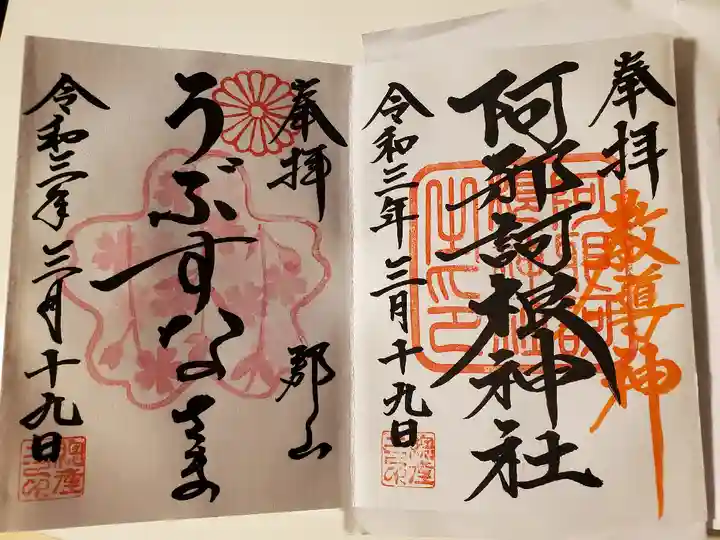 奉拝
教導神
阿邪訶根神社
令和三年三月十九日
奉拝
郡山
うぶすなさま
令和三年三月十九日